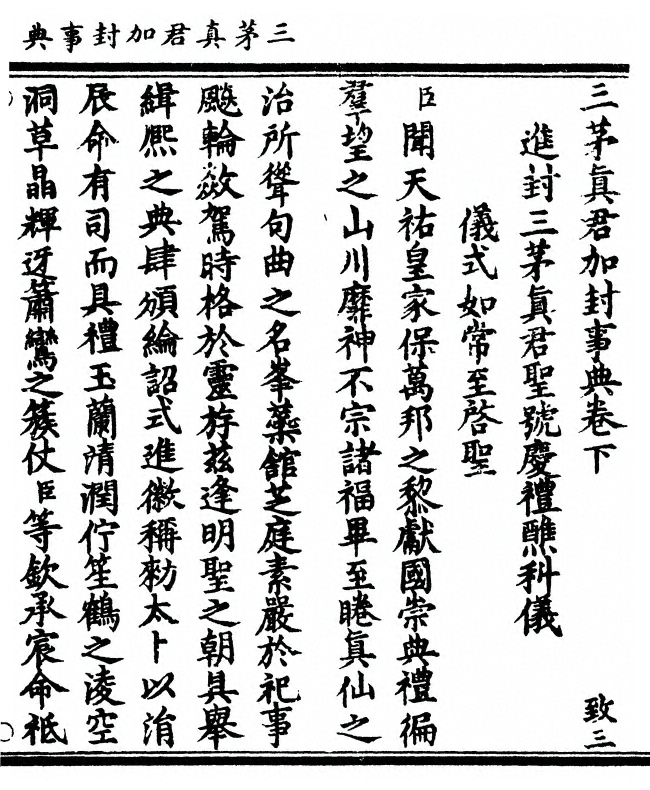 三茅真君加封事典
三茅眞君加封事典卷下　致三
進封三茅眞君聖號慶禮醮科儀
儀式如常至啓聖
臣聞天祐皇家保萬邦之黎獻國崇典禮徧
羣望之山川靡神不宗諸福畢至睠眞仙之
治所聳句曲之名峯蘂館芝庭素嚴於祀事
飈輪歘駕時格於靈斿茲逢明聖之朝具舉
緝熈之典肆頒綸詔式進徽稱勑太卜以涓
辰命有司而具禮玉蘭淸潤佇笙鶴之淩空
洞草晶輝迓簫鸞之簇仗臣等欽承宸命祗